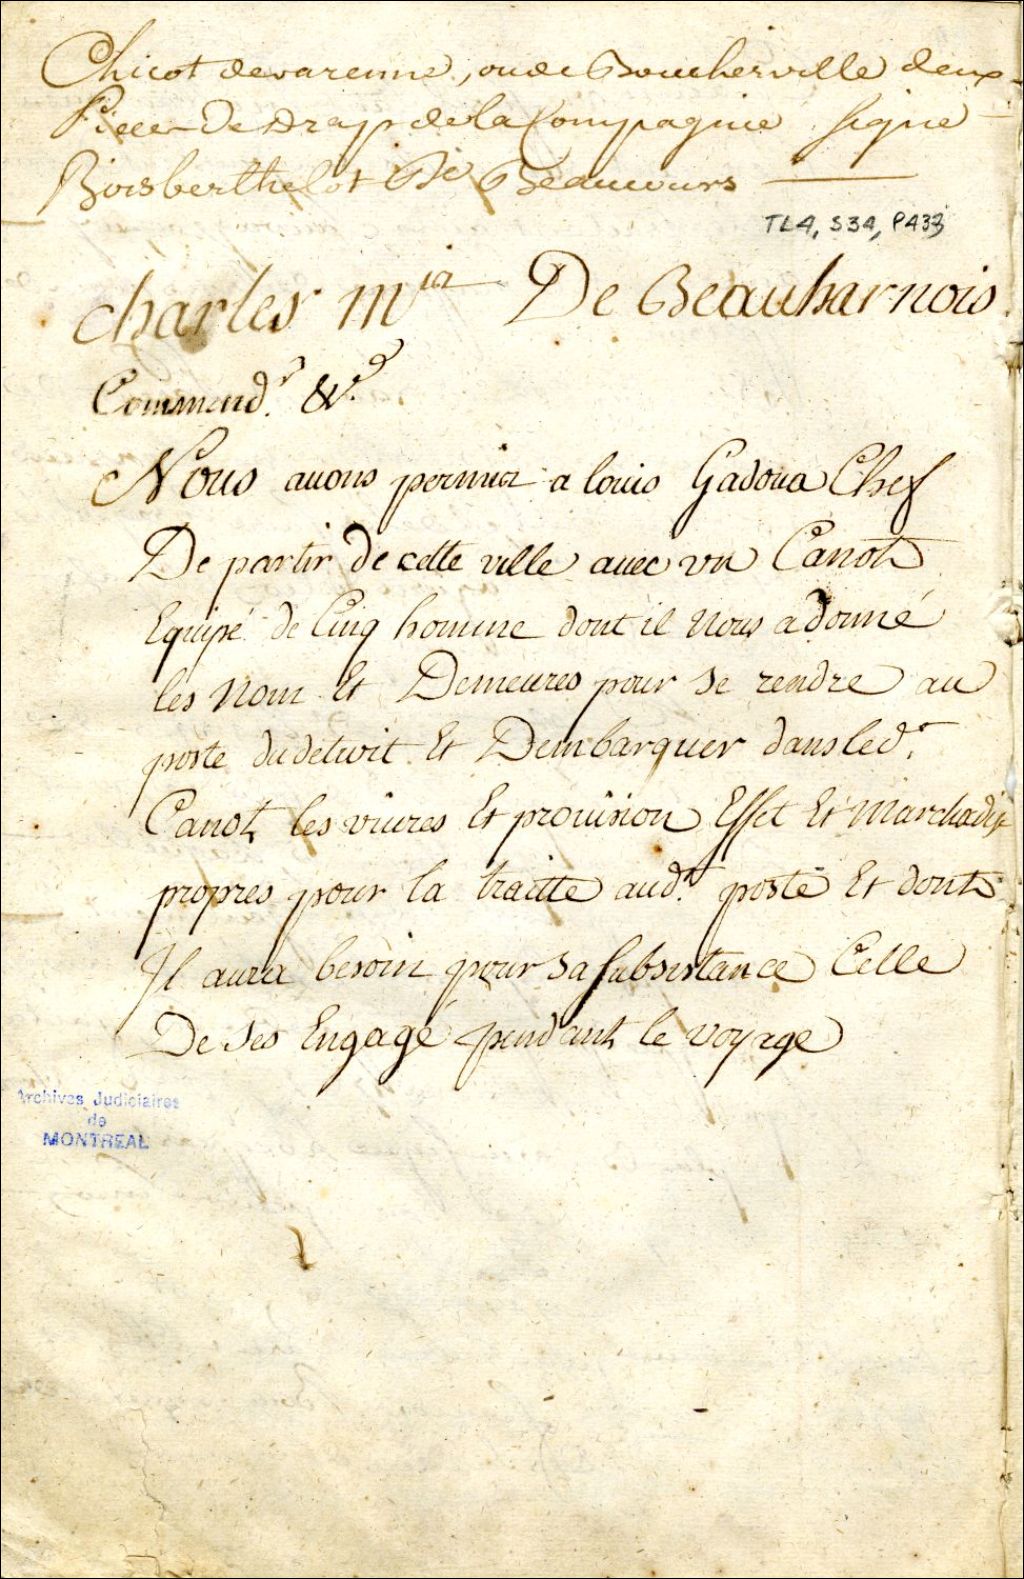 Chicot devarenne, oude Boucherville deux
Piece De Drap dela Compagnie signé
Boisberthelot De Beaucours
TL4, S34, P433
Charles mis De Beauharnois
Commandr. &c.
Nous auons permis a louis Gadoua Chef
De partir de cette ville auec un Canot
Equipé de Cinq homme dont il nous a donné
les nom Et Demeures pour se rendre au
poste dudetroit Et Dembarquer dansled.
Canot les viures Et prouision Effet Et Marchadise
propres pour la traitte aud. poste Et dont
Il aura besoin pour sa subsistance Celle
De ses Engagé pendant le voyage
Archives Judiciaires
de
MONTREAL